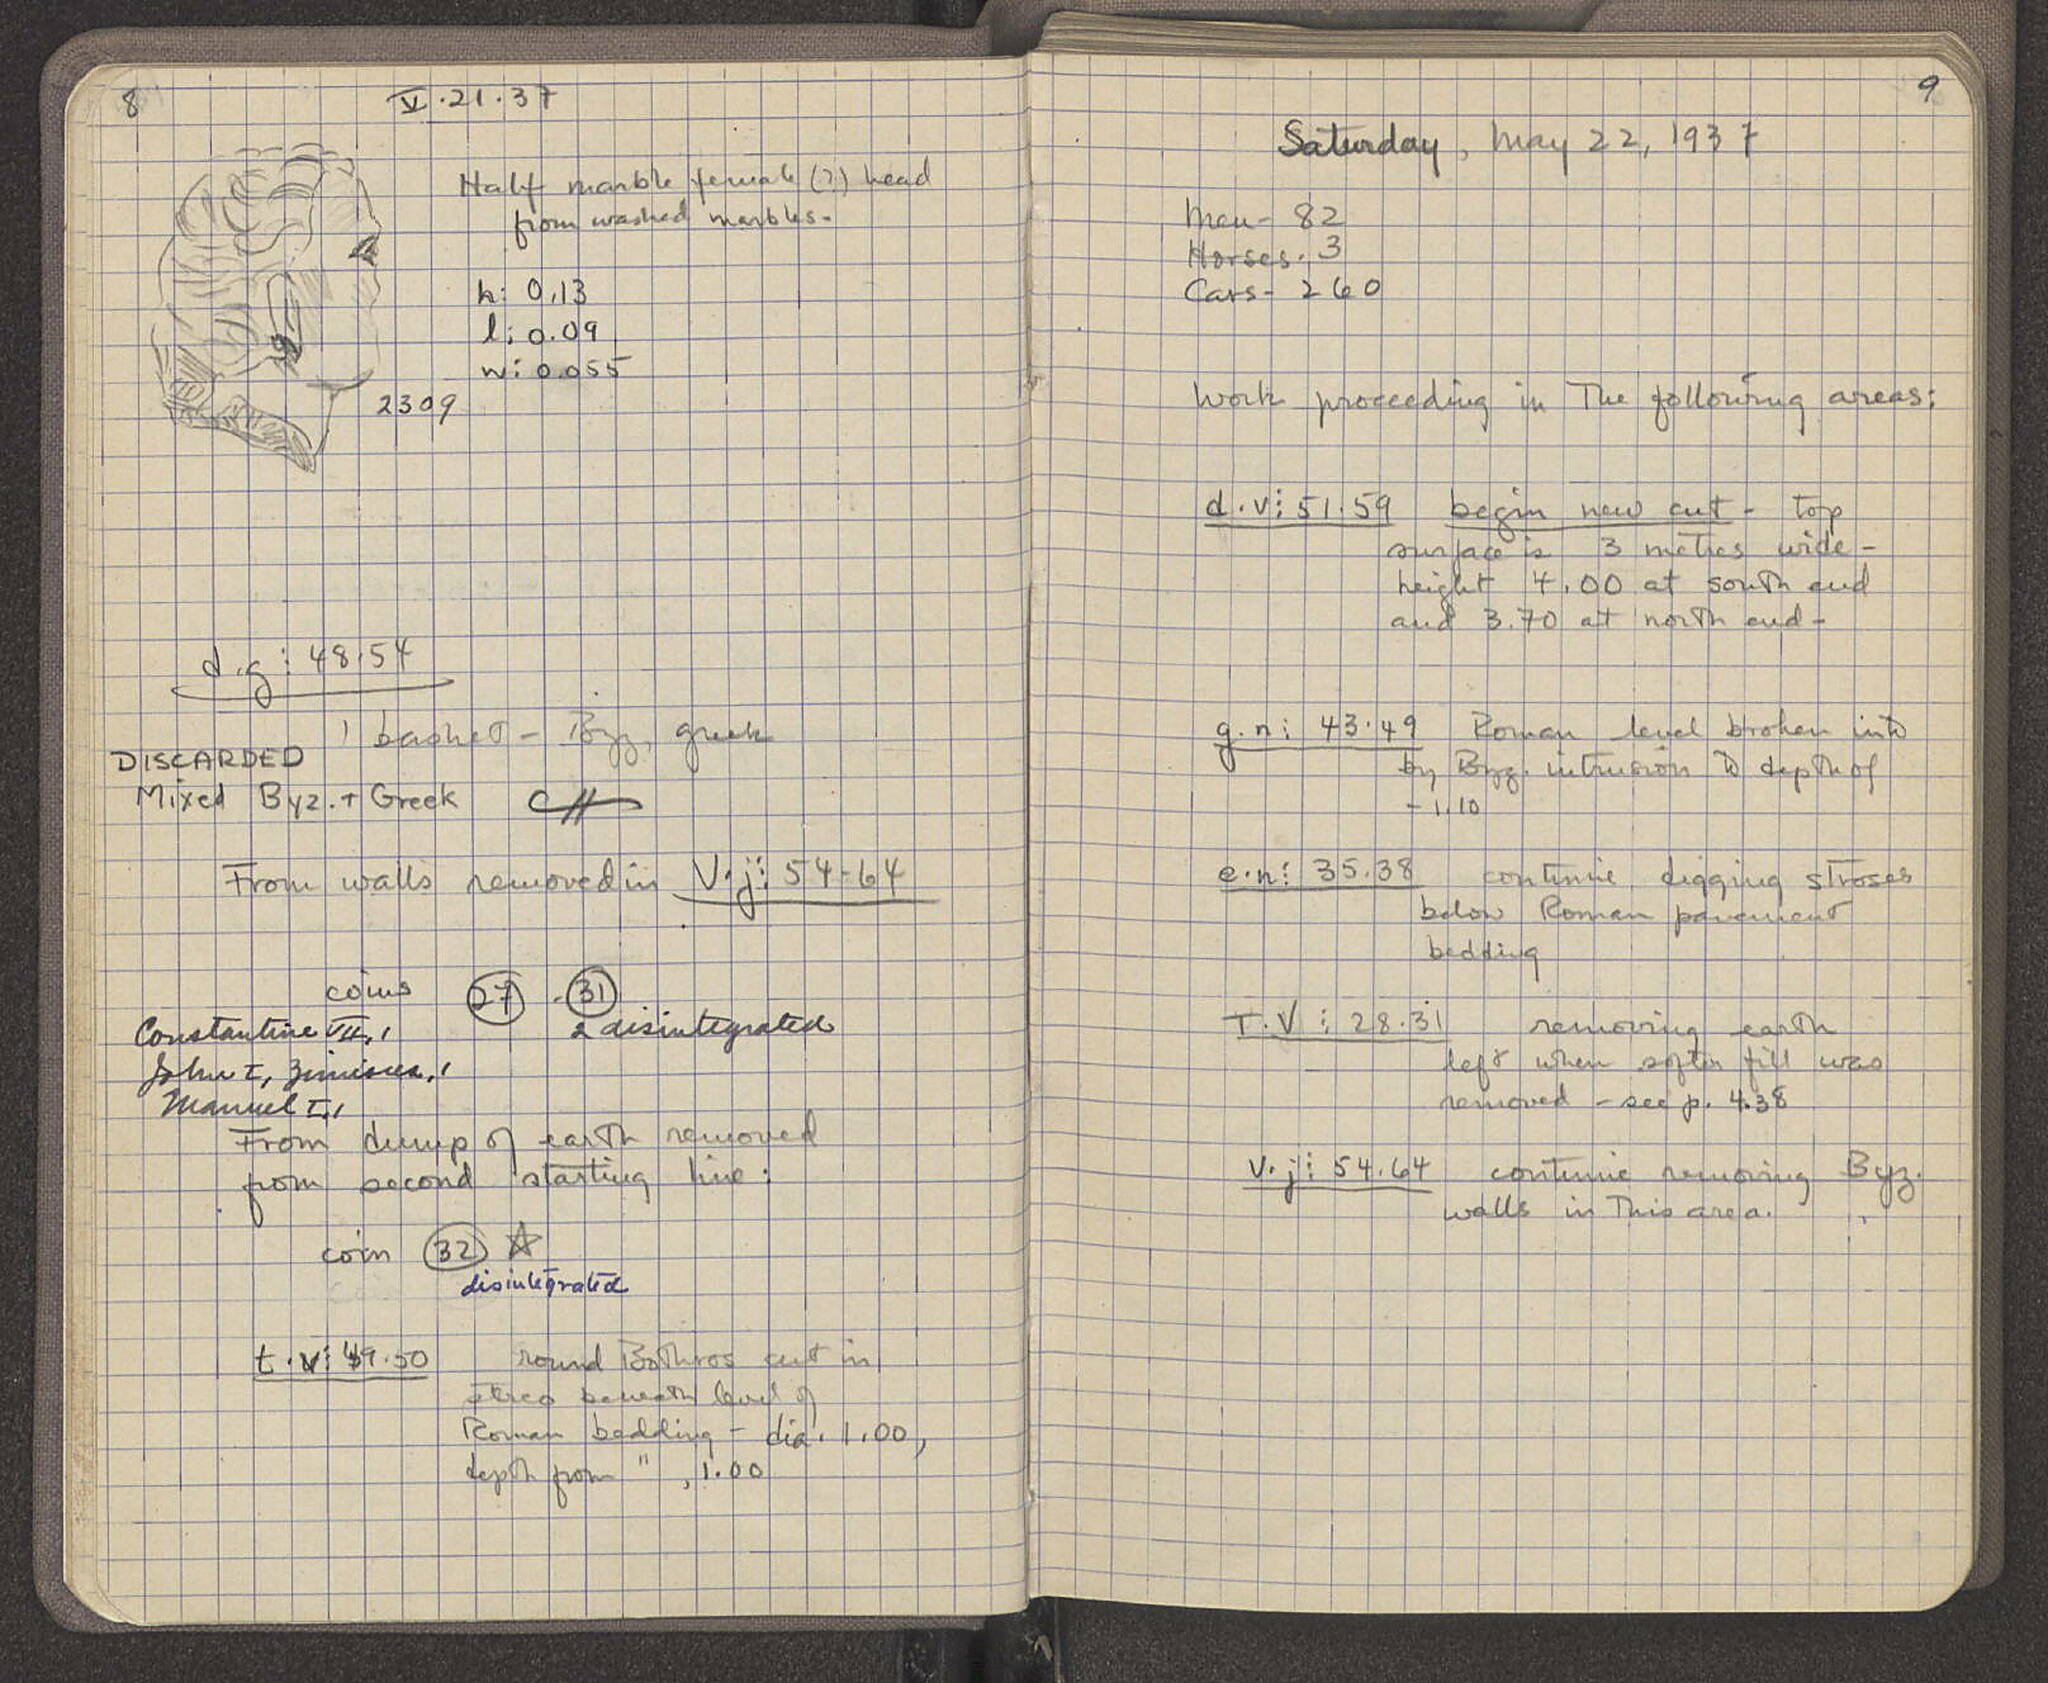 8
V.21.37
Half marble female (?) head
from washed marbles-
h: 0.13
l: 0.09
w: 0.055
2309
d.g: 48.54
1 basket - Byz, greek
DISCARDED
Mixed Byz. + Greek
From walls removed in V.j: 54-64
coins 27 - 31
Constantine VII, 1
2 disintegrated
John I, Zimisces, 1
Manuel I, 1
From dump of earth removed
from second starting line:
coin 32 ☆
disintegrated
t.v: 49.50 round Bothros cut in
stereo beneath level of
Roman bedding - dia. 1.00,
depth from " , 1.00
9
Saturday, May 22, 1937
Men- 82
Horses. 3
Cars- 260
Work proceeding in The following areas:
d.v: 51.59 begin new cut - top
surface is 3 metres wide -
height 4.00 at south end
and 3.70 at north end -
g.n: 43.49 Roman level broken into
by Byz. intrusion to depth of
-1.10
e.n: 35.38 continue digging stroses
below Roman pavement
bedding
T.V: 28.31 removing earth
left when softer fill was
removed - see p. 4.38
V.j: 54.64 continue removing Byz.
walls in This area.